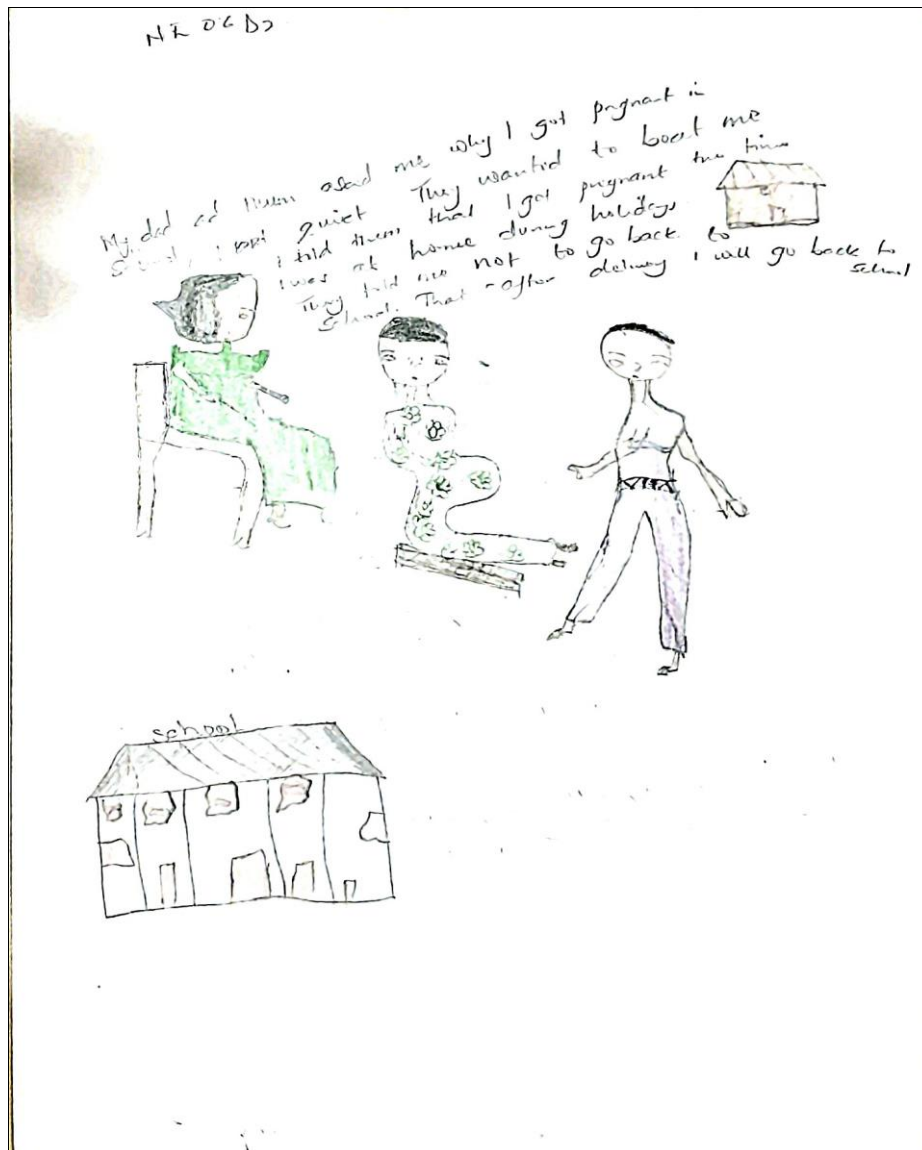 My dad ad mum asad me why I got pregnant in
School, I kept quiet They wanted to beat me
I told them that I got pregnant the time
I was at home during holidays.
They told me not to go back to
School. That after delivery I will go back to
school
school